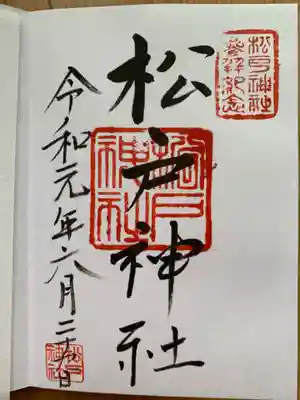 松戸神社
参拝記念
松戸神社
松戸神社
令和元年六月二十九日
松戸神社